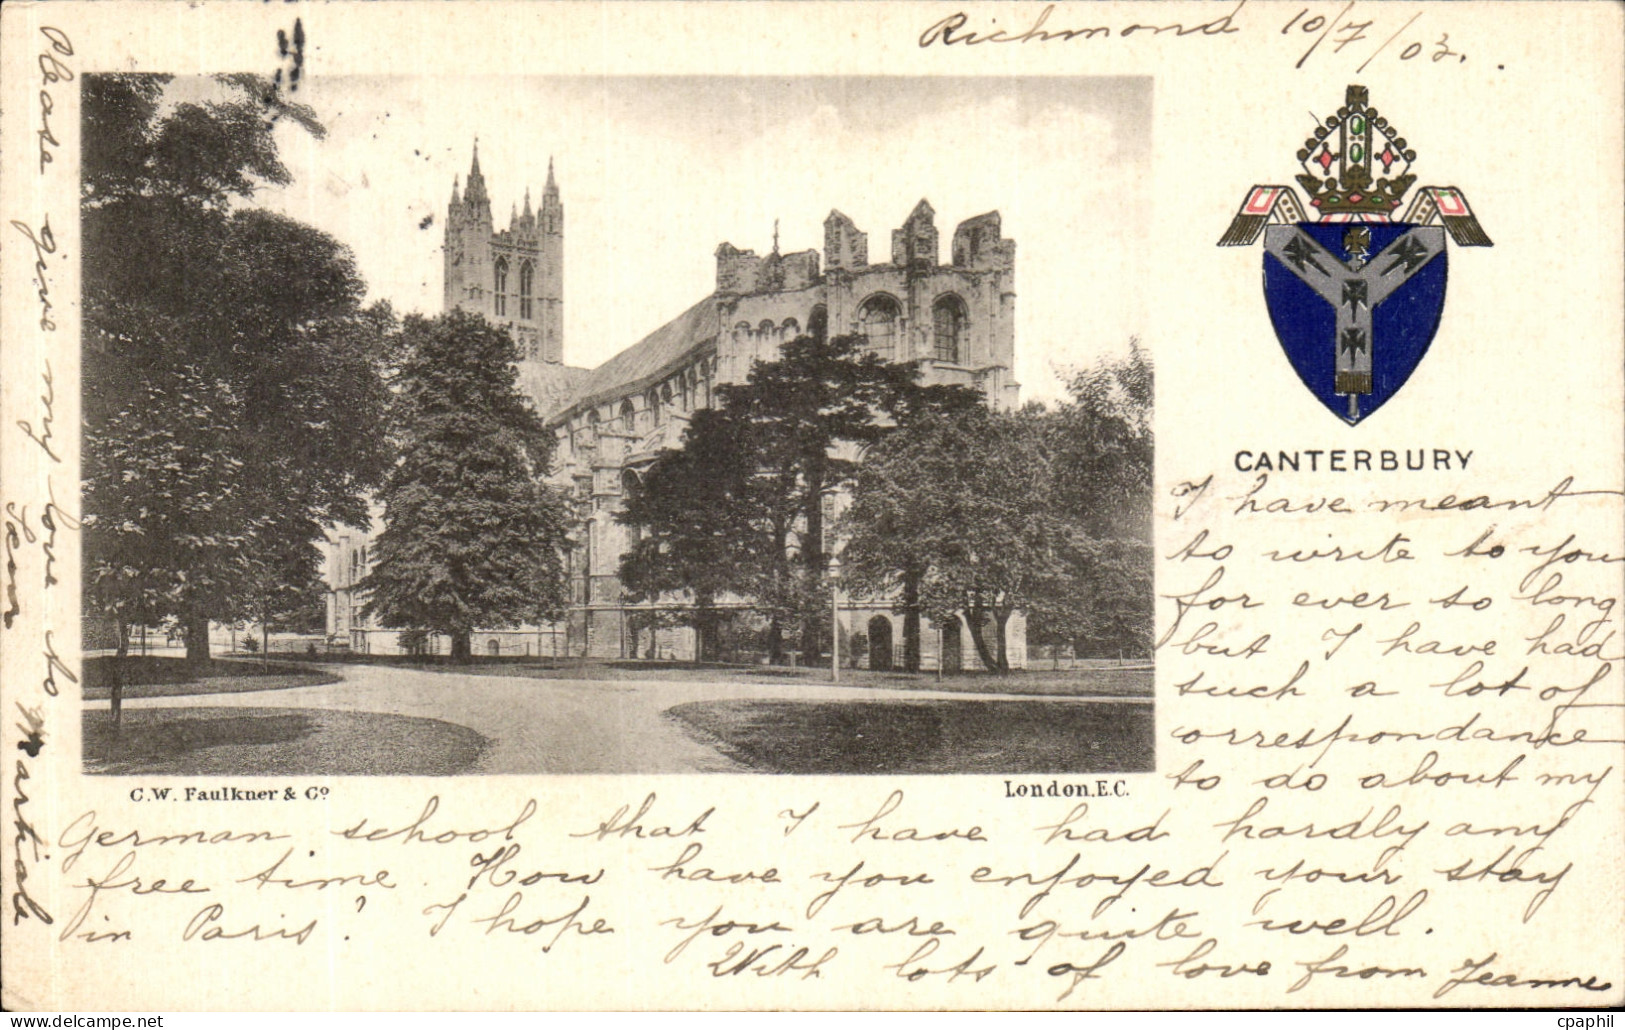 Richmond 10/7/03.
CANTERBURY
I have meant
to write to you
for ever so long
but I have had
such a lot of
correspondance
to do about my
C.W. Faulkner & Co.
London. E.C.
German school that I have had hardly any
free time. How have you enjoyed your stay
in Paris? I hope you are quite well.
With lots of love from Jeanne
Please give my love to
Martiale
www.delcampe.net
cpaphil